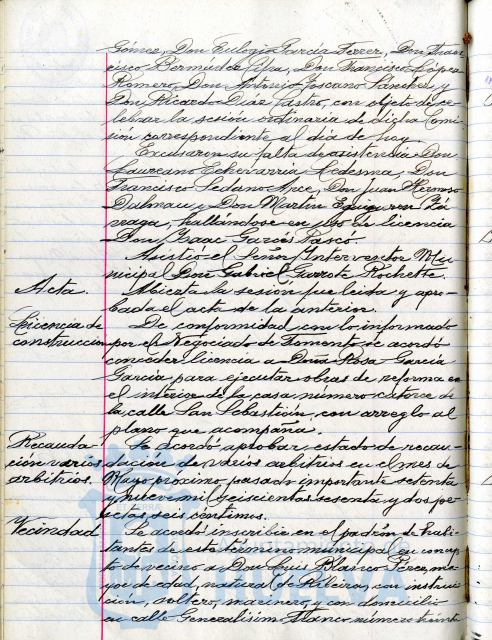 Gómez, Don Eulogio García Ferrer, Don Fran-
cisco Bermúdez, Don Francisco López
Romero, Don Antonio Toscano Sánchez y
Don Ricardo Díaz Castro, con objeto de ce-
lebrar la sesión ordinaria de dicha Comi
sión correspondiente al día de hoy.
Excusaron su falta de asistencia Don
Laureano Echevarría Ledesma, Don
Francisco Sedano Arce, Don Juan Hermoso
Dalmau y Don Martín
hallándose en uso de licencia
Don Isaac García Pascó.
Asistió el Señor Interventor Mu-
nicipal Don Gabriel Garrote Rochette.
Acta. Abierta la sesión fue leída y apro-
bada el acta de la anterior.
Licencia de De conformidad con lo informado
construcción por el Negociado de Fomento, se acordó
conceder licencia a Doña Rosa García
García para ejecutar obras de reforma en
el interior de la casa número catorce de
la calle San Sebastián, con arreglo al
plano que acompaña.
Recauda- Se acordó aprobar estado de recau-
ción varios dación de varios arbitrios en el mes de
arbitrios. Mayo próximo pasado importante setenta
y nueve mil seiscientas sesenta y dos pe-
setas seis céntimos.
Vecindad Se acordó inscribir en el padrón de habi-
tantes de este término municipal en concep
to de vecino a Don Luis Blanco Pérez, ma
yor de edad, natural de Ribeira, con instruc
ción, soltero, marinero, y con domicilio
en calle Generalísimo Franco número treinta
HUELVA